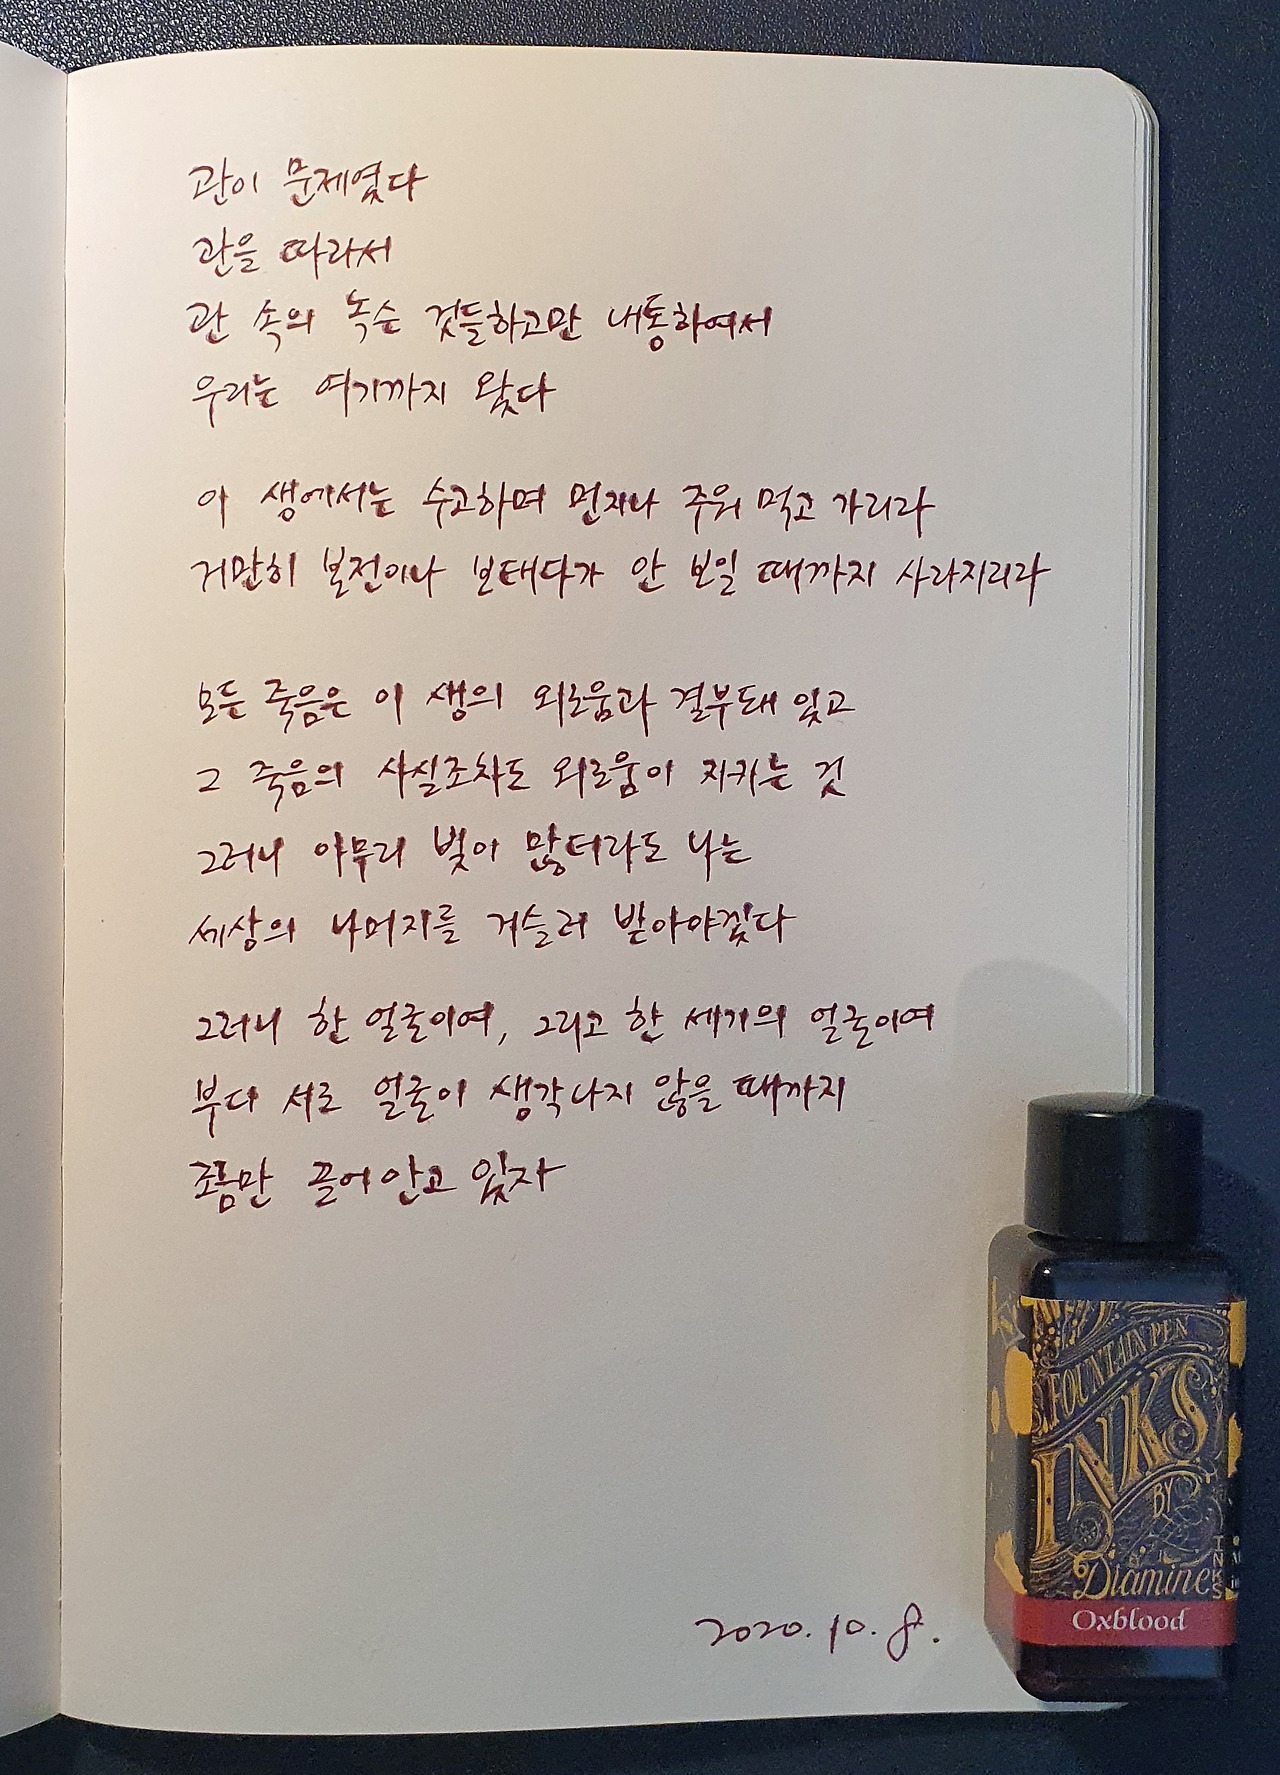 관이 문제였다
관을 따라서
관 속의 녹슨 것들하고만 내통하여서
우리는 여기까지 왔다
이 생에서는 수고하며 먼지나 주워 먹고 가리라
거만히 본전이나 보태다가 안 보일 때까지 사라지리라
모든 죽음은 이 생의 외로움과 결부돼 있고
그 죽음의 사실조차도 외로움이 지키는 것
그러니 아무리 빚이 많더라도 나는
세상의 나머지를 거슬러 받아야겠다
그러니 한 얼굴이여, 그리고 한 세기의 얼굴이여
부디 서로 얼굴이 생각나지 않을 때까지
조름만 끌어안고 있자
2020. 10. 8.
FOUNTAIN PEN
INKS
BY
Diamine
Oxblood
INKS